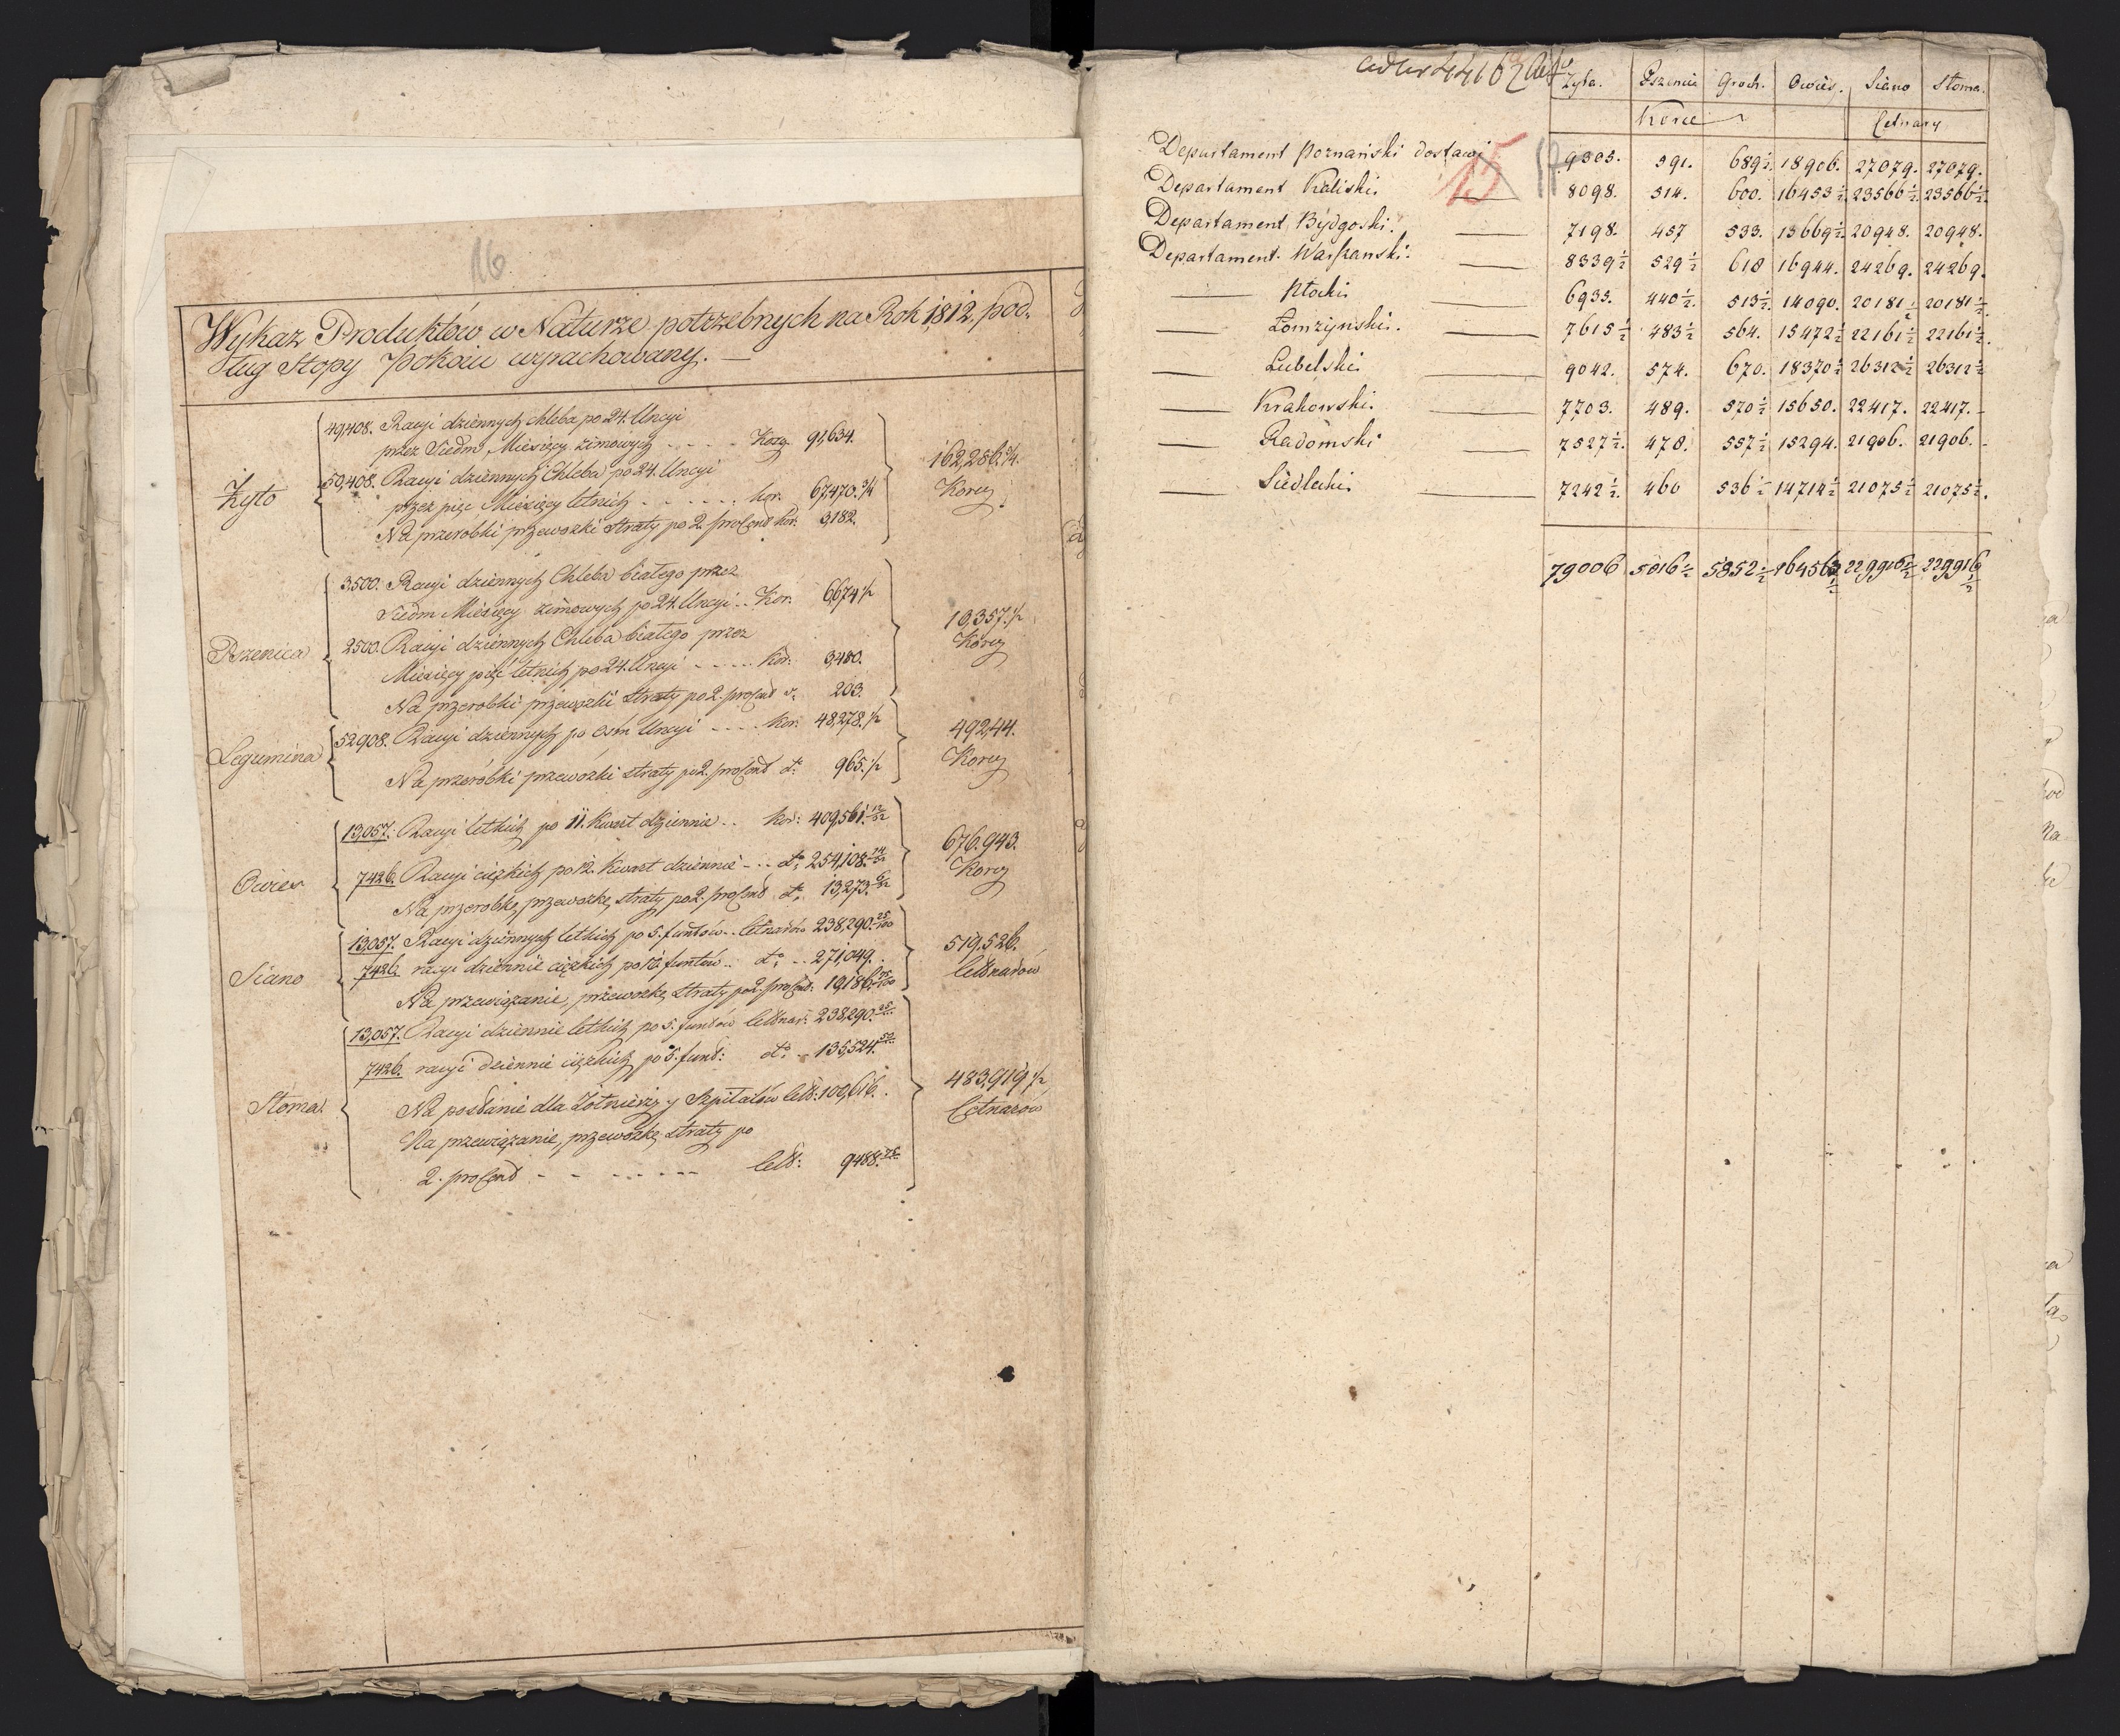 16
Wykaz Produktów w Naturze potrzebnych na Rok 1812, pod-
ług Stopy Pokoiu wyrachowany. —
Żyto
49,408. Racyi dziennych chleba po 24. Uncyi
przez Siedm Miesięcy zimowych . . . . Korcy 91,634.
50,408. Racyi dziennych Chleba po 24. Uncyi
przez pięć Miesięcy letnich . . . . . . kor. 67,470.3/4
Na przerobki przewozki straty po 2. procent kor: 3,182.
162,286.3/4.
Korcy
Pszenica
3,500. Racyi dziennych Chleba białego przez
Siedm Miesięcy zimowych po 24. Uncyi . . Kor. 6,674 1/2
2500. Racyi dziennych Chleba białego przez
Miesięcy pięć letnich po 24. Uncyi . . . . . kor: 3,480.
Na przerobki przewozki straty po 2. procent d: 203.
10,357.1/2
Korcy
Legumina
52,908. Racyi dziennych po osm Uncyi . . . . kor: 48,278.1/2
Na przerobki przewozki straty po 2. procent do: 965.1/2
492,44.
Korcy
Owies
13,057. Racyi letkich po 11. Kwart dziennie . . kor: 409,561.12/32
7426. Racyi cięzkich po 12. Kwart dziennie . . . do: 254,108.14/32
Na przerobkę, przewozkę, straty po 2. procent do: 13,273.6/32
676,943.
Korcy
Siano
13,057. Racyi dziennych letkich po 5. funtów . . Cetnarów 238,290.25/100
7426. racyi dziennie cięzkich po 10. funtów . . do: . . 271,049.
Na przewiązanie, przewozkę, straty po 2. procent: 19,186.75/100
519,526.
Cetnarów
Słoma
13,057. Racyi dziennie letkich po 5. funtów Cetnar: 238,290.25
7426. racyi dziennie cięzkich po 5. funt: do: . . 135,524.50
Na posłanie dla Zołnierzy y Szpitalów Cet: 100,616.
Na przewiązanie, przewozkę, straty po
2. procent . . . . . . . . Cet: 9488.75
483,919 1/2
Cetnarów
Żyta. Pszenica Groch. Owies. Siano Słoma.
Korce Cetnary
15 17
Departament Poznański dostawi 9305. 591. 689 1/2. 18906. 27079. 27079.
Departament Kaliski. — 8098. 514. 600. 16453 1/2. 23566 1/2. 23566 1/2.
Departament Bydgoski. — 7198. 457 533. 13669 1/2. 20948. 20948.
Departament Warszawski. — 8339 1/2 529 1/2 618 16944. 24269. 24269.
— Płocki — 6935. 440 1/2. 513 1/2. 14090. 20181 1/2 20181 1/2.
— Łomzynski. — 7615 1/2 483 1/2 564. 15472 1/2 22161 1/2 22161 1/2.
— Lubelski — 9042. 574. 670. 18320 1/2 26312 1/2 26312 1/2
— Krakowski. — 7703. 489. 570 1/2 15650. 22417. 22417. -
— Radomski — 7527 1/2. 478. 557 1/2 15294. 21906. 21906. -
— Siedlecki — 7242 1/2. 460 536 1/2 14714 1/2 21075 1/2 21075 1/2.
79006 5016 1/2 5852 1/2 164563 1/2 229916 1/2 229916 1/2